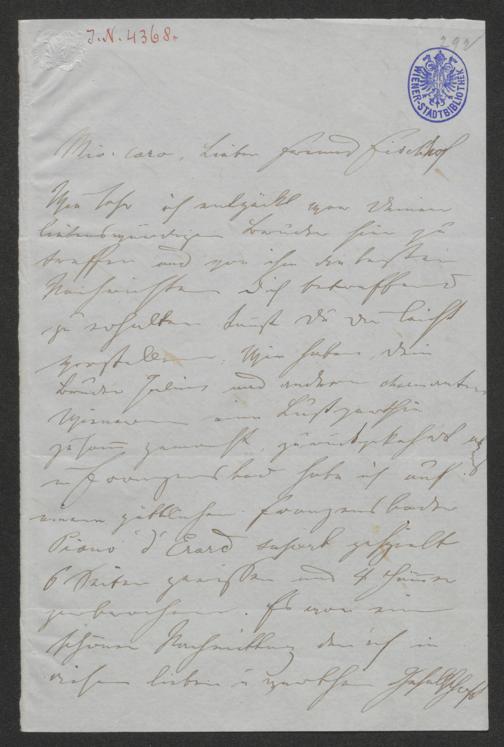 J.N. 4368.
292
WIENER-STADTBIBLIOTHEK
Mio caro, Lieber Freund Fischhof
Wie sehr ich entzückt war Deinen
liebenswürdigen Bruder hier zu
treffen und von ihm die besten
Nachrichten Dich betreffend
zu erhalten kannst Du Dir leicht
vorstellen. Wir haben Dein
Bruder Julius und andern charmanten
Wienern eine Lustparthie
gemacht, zurückgekehrt
in Franzensbad habe ich auf
einem göttlichen Franzensbader
Piano d'Erard sofort gespielt
6 Saiten gerissen und 4 Hämmer
zerbrochen. Es war ein
schöner Nachmittag den ich in
dieser lieben u werthen Gesellschaft